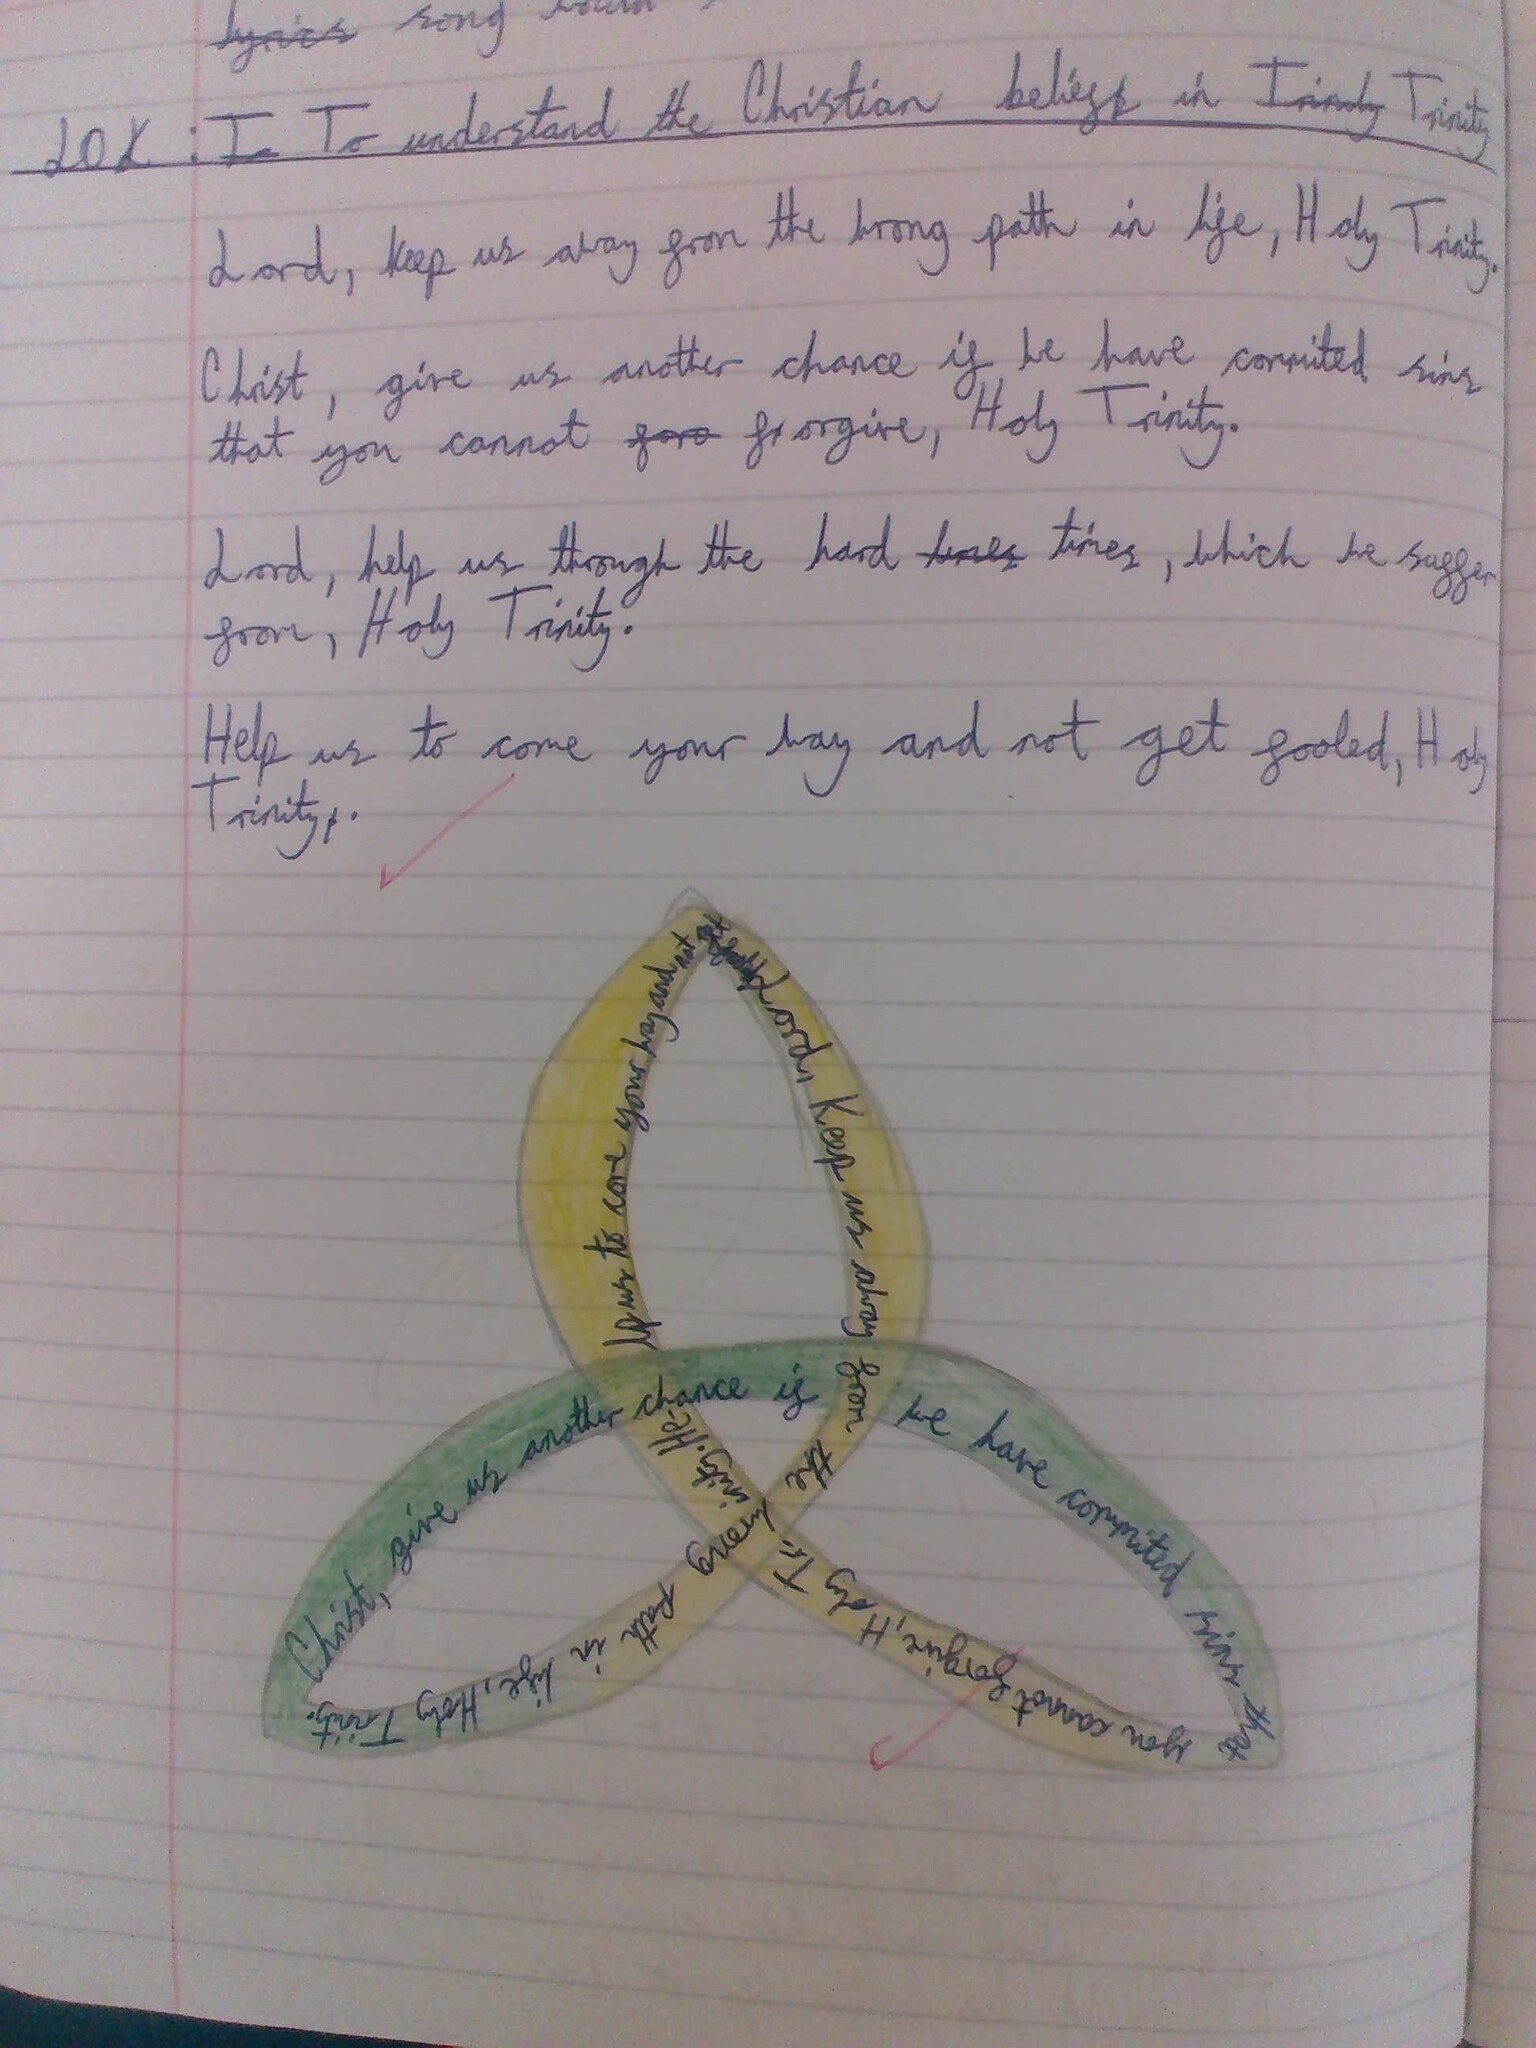 lyrics song
LO X : To To understand the Christian belief in Trinity Trinity
Lord, keep us away from the wrong path in life, Holy Trinity.
Christ, give us another chance if we have commited sins
that you cannot foro frorgive, Holy Trinity.
Lord, help us through the hard times times, which we suffer
from, Holy Trinity.
Help us to come your way and not get fooled, Holy
Trinity.
Lord Keep us away from the wrong path in life, Holy Trinity.
Christ, give us another chance if we have commited sins that
you cannot forgive, Holy Trinity. Help us to come your way and not